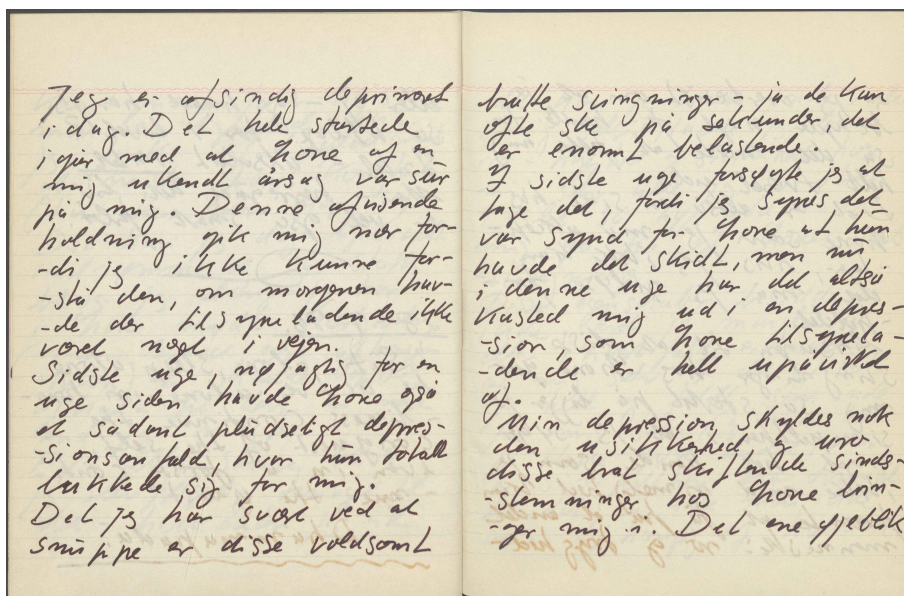 Jeg er afsindig deprimeret
idag. Det hele startede
igår med at Tone af en
mig ukendt årsag var sur
på mig. Denne afvisende
holdning gik mig nær for-
-di jeg ikke kunne for-
-stå den, om morgenen hav-
-de der tilsyneladende ikke
været noget i vejen.
Sidste uge, nøjagtig for en
uge siden havde Tone også
et sådant pludseligt depres-
-sionsanfald, hvor hun totalt
lukkede sig for mig.
Det jeg har svært ved at
snuppe er disse voldsomt
bratte svingninger - ja de kan
ofte ske på sekunder, det
er enormt belastende.
I sidste uge forsøgte jeg at
tage det, fordi jeg synes det
var synd for Tone at hun
havde det skidt, men nu
i denne uge har det altså
kasted mig ud i en depres-
-sion, som Tone tilsynela-
-dende er helt upåvirket
af.
Min depression skyldes nok
den usikkerhed og uro
disse brat skiftende sinds-
-stemninger hos Tone brin-
-ger mig i. Det ene øjeblik